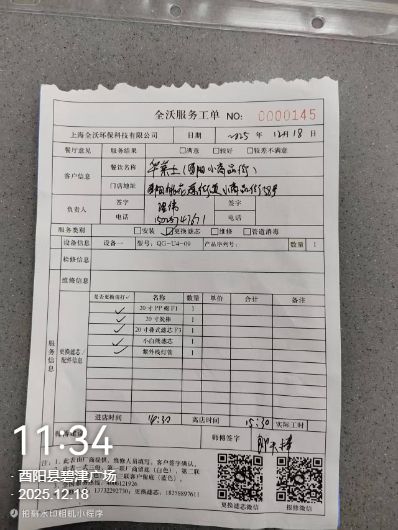 全沃服务工单 NO: 0000145
上海全沃环保科技有限公司 日期 2025年12月18日
餐厅意见 服务结果 □满意 □较好 □较差不满意
客户信息 餐饮名称 华莱士(酉阳小商品街)
门店地址 酉阳桃花源街道小商品街58号
负责人 签字 签字
电话 电话
服务类别 □安装 ☑更换滤芯 □维修 □管道消毒
设备信息 设备一 型号: QG-U4-09 产品序列号: 数量 1
检修信息
维修信息
服务信息
更换滤芯/配件信息
是否更换需打✓ 名称 数量 单价 合计 备注
✓ 20寸PP棉 1
✓ 20寸炭棒 1
✓ 20寸折式滤芯 1
✓ 小白线滤芯 1
✓ 紫外线灯管 1
进店时间 14:30 离店时间 15:30 实际工时
师傅签字
更换滤芯微信 报修微信
11:34
酉阳县碧津广场
2025.12.18